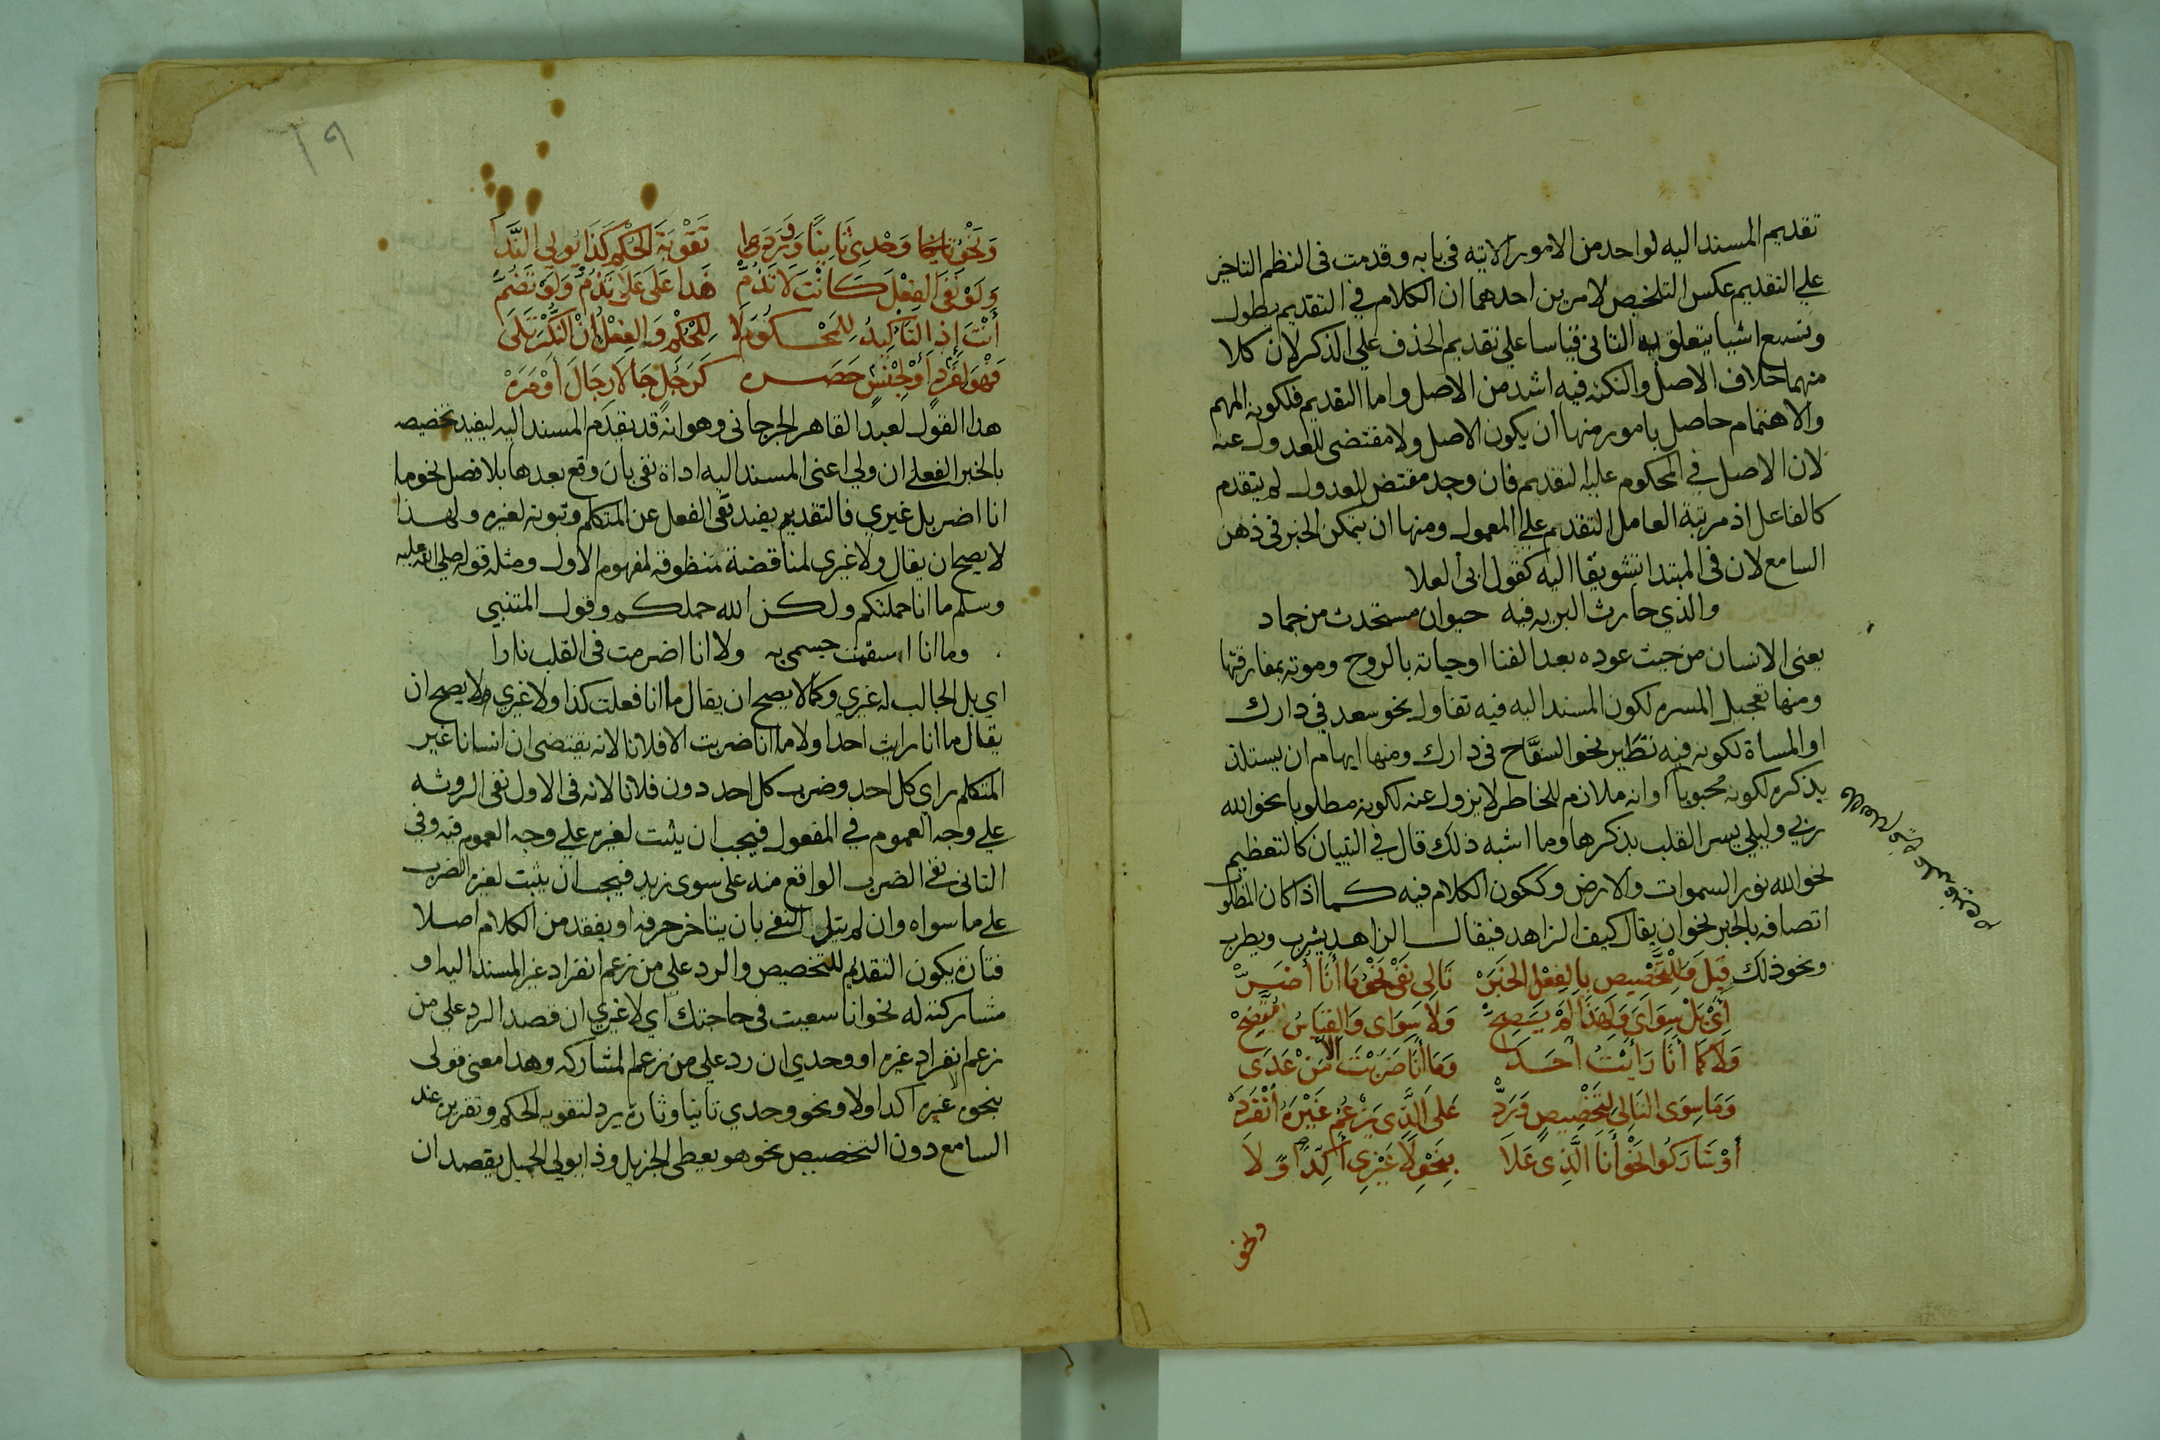 تقديم المسند اليه لواحد من الامور الاتيه في بابه وقدمت في النظم التاخير
على التقديم عكس التلخيص لامرين احدهما ان الكلام في التقديم يطول
ويتسع اشيا يتعلق به الثاني قياسا على تقديم الحذف على الذكر لان كلا
منهما خلاف الاصل والنكته فيه اشد من الاصل واما التقديم فلكونه المهم
والاهتمام حاصل بامور منها أن يكون الاصل ولا مقتضى للعدول عنه
لان الاصل في المحكوم عليه التقديم فان وجد مقتض للعدول لم يتقدم
كالفاعل اذ مرتبة العامل التقديم على المعمول ومنها ان يتمكن الخبر في ذهن
السامع لان في المبتدا تشويقا اليه كقول ابي العلا
والذي حارت البريه فيه حيوان مستحدث من جماد
يعني الانسان من حيث عوده بعد الفنا او حياته بالروح وموته بمفارقتها
ومنها تعجيل المسره لكون المسند اليه فيه تفاول نحو سعد في دارك
او المساة لكونه فيه تطير نحو السفاح في دارك ومنها ايهام ان يستلذ
بذكره لكونه محبوبا او انه ملازم للخاطر لا يزول عنه لكونه مطلوبا نحو الله
ربي وليلي يسر القلب بذكرها وما اشبه ذلك قال في التبيان كالتعظيم
نحو الله نور السموات والارض وككون الكلام فيه كما اذا كان المطلو
اتصافه بالخبر نحو ان يقال كيف الزاهد فيقال الزاهد يشرب ويطرب
ونحو ذلك قِيلَ وَلِلتَّخْصِيصِ بِالفِعْلِ الخَبَرْ تَالِي نَفْيٍ نَحْوُ مَا أَنَا أَضَرّْ
أَيْ بَلْ سِوَايَ وَلِهَذَا لَمْ يَصِحّْ وَلَا سِوَاى وَالقِيَاسُ مُتَّضِحْ
وَلَا كَمَا أَنَا رَأَيْتُ أَحَدَا وَمَا أَنَا ضَرَبْتُ الَّا مَنْ عَدَى
وَمَا سِوَى التَالِى لِتَخْصِيصٍ وَرَدّْ عَلَى الَّذِى يَزْعُمُ غَيْرَهُ انْفَرَدْ
أَوْ شَارَكُوا نَحْوُ أَنَا الَّذِى عَلَا بِنَحْوِ لَا غَيْرِي أَكِّدْ أَوَّلَا
ونحو
وَنَحْوُ وَحْدِى ثَانِيًا وَقَدْ يَرِدْ تَقْوِيَةَ الحُكْمِ كَذَا يُولِى النَّدَا
وَلَوْ نَفَى الفِعْلَ كَأَنْتَ لَا تَذُمّْ هَذَا عَلَى عَلَا تَذُمُّ وَلَوْ تَضُمّْ
أَنْتَ إِذِ التَّأْكِيدُ لِلمَحْكُومِ لَا لِلْحُكْمِ وَالفِعْلُ انْ النُّكْرَ تَلَى
فَهْوَ لِفَرْدٍ أَوْ لِجِنْسٍ حَصَرَهْ كَرَجُلٌ جَا لَا رِجَالَ أَوْ مَرَهْ
هذا القول لعبد القاهر الجرجاني وهو انه قد يقدم المسند اليه ليفيد تخصيصه
بالخبر الفعلي ان ولي اعني المسند اليه اداة نفي بان وقع بعدها بلا فصل نحو ما
انا اضر بل غيري فالتقديم يفيد نفي الفعل عن المتكلم وثبوته لغيره ولهذا
لا يصح ان يقال ولا غيري لمناقضة منطوقه لمفهوم الاول ومثله قوله صلى الله عليه
وسلم ما انا حملتكم ولكن الله حملكم وقول المتنبي
وما انا اسقمت جسمي به ولا انا اضرمت في القلب نارا
اي بل الجالب له غيري وكما لا يصح ان يقال ما انا فعلت كذا ولا غيري لا يصح ان
يقال ما انا رايت احدا ولا ما انا ضربت الا فلانا لانه يقتضي ان انسانا غير
المتكلم راي كل احد وضرب كل احد دون فلانا لانه في الاول نفى الرويه
على وجه العموم في المفعول فيجب ان يثبت لغيره على وجه العموم فيه وفي
الثاني نفي الضرب الواقع منه على سوى زيد فيجب ان يثبت لغيره الضرب
على ما سواه وان لم يتل النفي بان يتاخر حرفه او يفقد من الكلام اصلا
فتارة يكون التقديم للتخصيص والرد على من زعم انفراد غير المسند اليه او
مشاركته له نحو انا سعيت في حاجتك اي لا غيري ان قصد الرد على من
زعم انفراد غيره او وحدي ان رد على من زعم المشاركه وهذا معنى قولي
بنحو لا غيري اكد اولا ونحو وحدي ثانيا وتارة يرد لتقويه الحكم وتقريره عند
السامع دون التخصيص نحو هو يعطي الجزيل وذا يولي الجميل يقصد ان